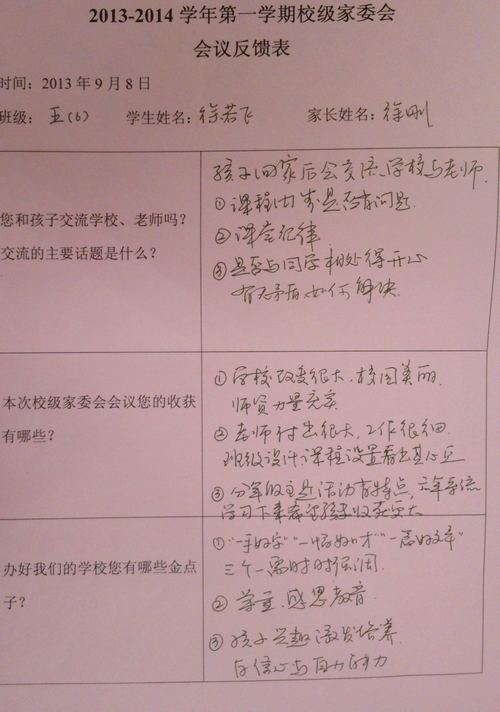 2013-2014 学年第一学期校级家委会
会议反馈表
时间：2013 年 9 月 8 日
班级： 五(6) 学生姓名：徐若飞 家长姓名：徐刚
您和孩子交流学校、老师吗？
交流的主要话题是什么？
孩子回家后会交流学校与老师
①课程内 是否有问题.
②课堂纪律
③是否与同学相处得开心
有无矛盾,如何解决.
本次校级家委会会议您的收获
有哪些？
①学校改变很大,校园美丽.
师资力量充实
②老师付出很大,工作很细.
班级设计、课程设置看出其心
③分年段主题活动有特点,六年
学习下来 孩子收获更大
办好我们的学校您有哪些金点
子？
①"一手好字""一 好 才""一篇好文章"
三个一需时时强调.
② 尊重.感恩教育.
③孩子兴趣激发培养.
自信心与自 能力